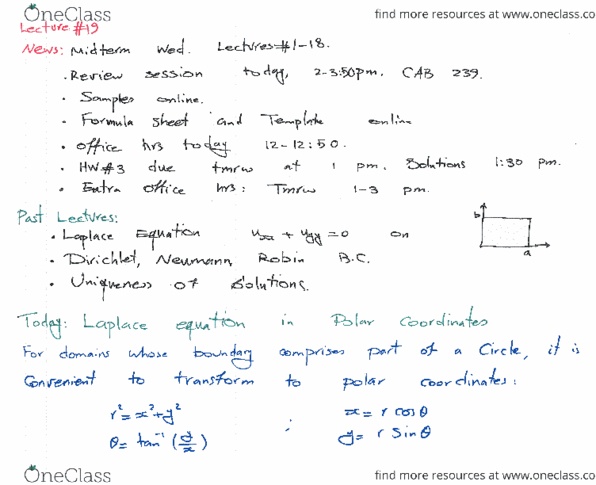 OneClass
find more resources at www.oneclass.co
Lecture #19
News: Midterm Wed. Lectures #1-18.
. Review session today, 2-3:50pm. CAB 239.
• Samples online.
• Formula sheet and Template online
• office hrs today 12-12:50.
• HW#3 due tmrw at 1 pm. Solutions 1:30 pm.
• Extra office hrs: Tmrw 1-3 pm.
Past Lectures:
• Laplace Equation uxx + uyy = 0 on
b
a
• Dirichlet, Neumann, Robin B.C.
• Uniqueness of Solutions.
Today: Laplace equation in Polar Coordinates
For domains whose boundary comprises part of a Circle, it is
Convenient to transform to polar coordinates:
r² = x² + y² ; x = r cosθ
θ = tan⁻¹ (y/x) y = r Sinθ
OneClass
find more resources at www.oneclass.co